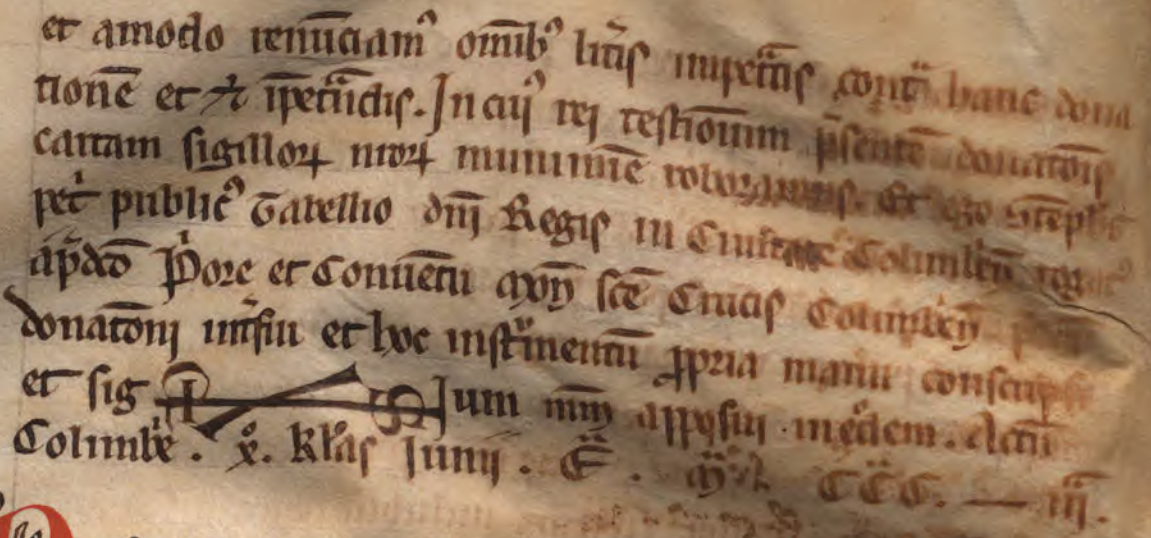 et amodo renūciam⁹ om̄ib⁹ lit̄is inpet̄tis cont̄ hanc dona
tionē et & īpet̄ndis. In cui⁹ rei testīonium p̄sentē donatōis
cartam sigilloꝝ nr̄oꝝ munimīe roboramus. Et ego Steph̄s
pet̄ public⁹ Tabellio dn̄i Regis in Ciuitate Colimb̄n rogat⁹
a p̄dc̄o P̄ore et Conuētu mon̄ sc̄e Crucis Colimb̄n
donatōni int̄fui et hoc inst̄umentū ꝓpria manu conscripsi
et sig S lum mm̄ apposui in eodem. Actū
Colimb̄e. x̊. kl̄as Junij. E. Mͣ. CCC. — iij.